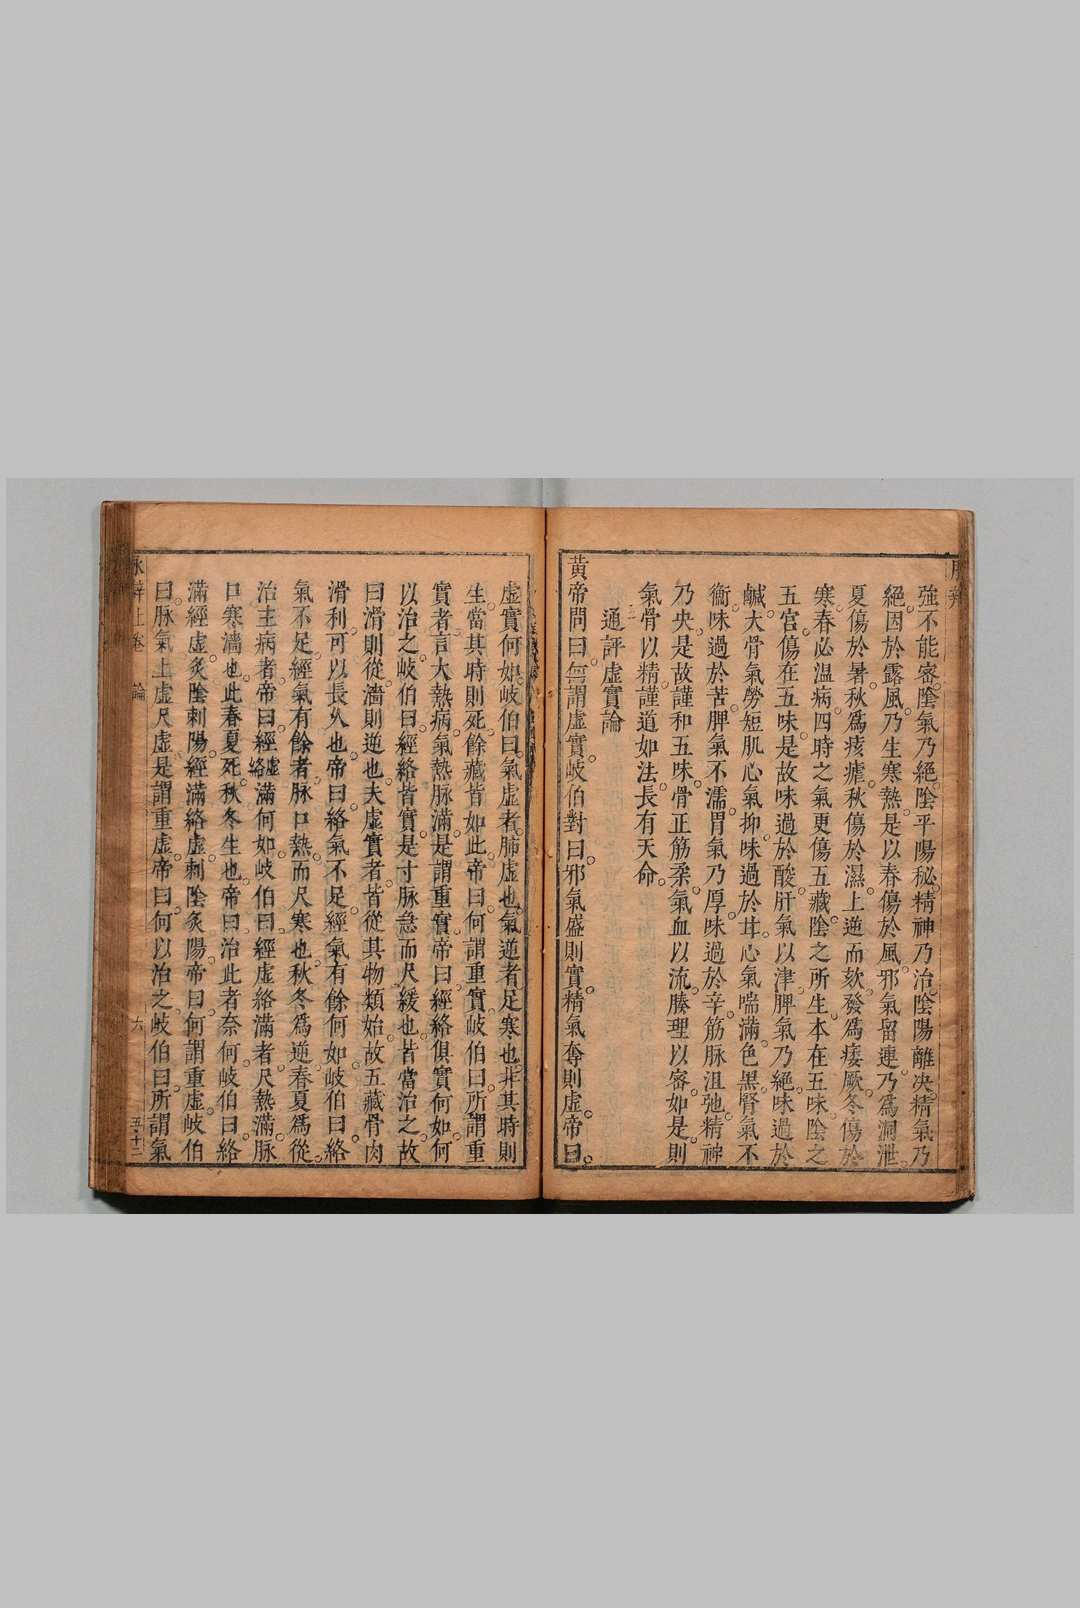 強不能密陰氣乃絕陰平陽秘精神乃治陰陽離决精氣乃
絕因於露風乃生寒熱是以春傷於風邪氣留連乃爲洞泄
夏傷於暑秋爲痎瘧秋傷於濕上逆而欬發爲痿厥冬傷於
寒春必温病四時之氣更傷五藏陰之所生本在五味陰之
五官傷在五味是故味過於酸肝氣以津脾氣乃絕味過於
鹹大骨氣勞短肌心氣抑味過於甘心氣喘滿色黑腎氣不
衡味過於苦脾氣不濡胃氣乃厚味過於辛筋脉沮弛精神
乃央是故謹和五味骨正筋柔氣血以流腠理以密如是則
氣骨以精謹道如法長有天命
通評虛實論
黃帝問曰何謂虛實岐伯對曰邪氣盛則實精氣奪則虛帝曰
虛實何如岐伯曰氣虛者肺虛也氣逆者足寒也非其時則
生當其時則死餘藏皆如此帝曰何謂重實岐伯曰所謂重
實者言大熱病氣熱脉滿是謂重實帝曰經絡俱實何如何
以治之岐伯曰經絡皆實是寸脉急而尺緩也皆當治之故
曰滑則從濇則逆也夫虛實者皆從其物類始故五藏骨肉
滑利可以長久也帝曰絡氣不足經氣有餘何如岐伯曰絡
氣不足經氣有餘者脉口熱而尺寒也秋冬爲逆春夏爲從
治主病者帝曰經虛絡滿何如岐伯曰經虛絡滿者尺熱滿脉
口寒濇也此春夏死秋冬生也帝曰治此者奈何岐伯曰絡
滿經虛灸陰刺陽經滿絡虛刺陰灸陽帝曰何謂重虛岐伯
曰脉氣上虛尺虛是謂重虛帝曰何以治之岐伯曰所謂氣
上卷 論 六 五十三